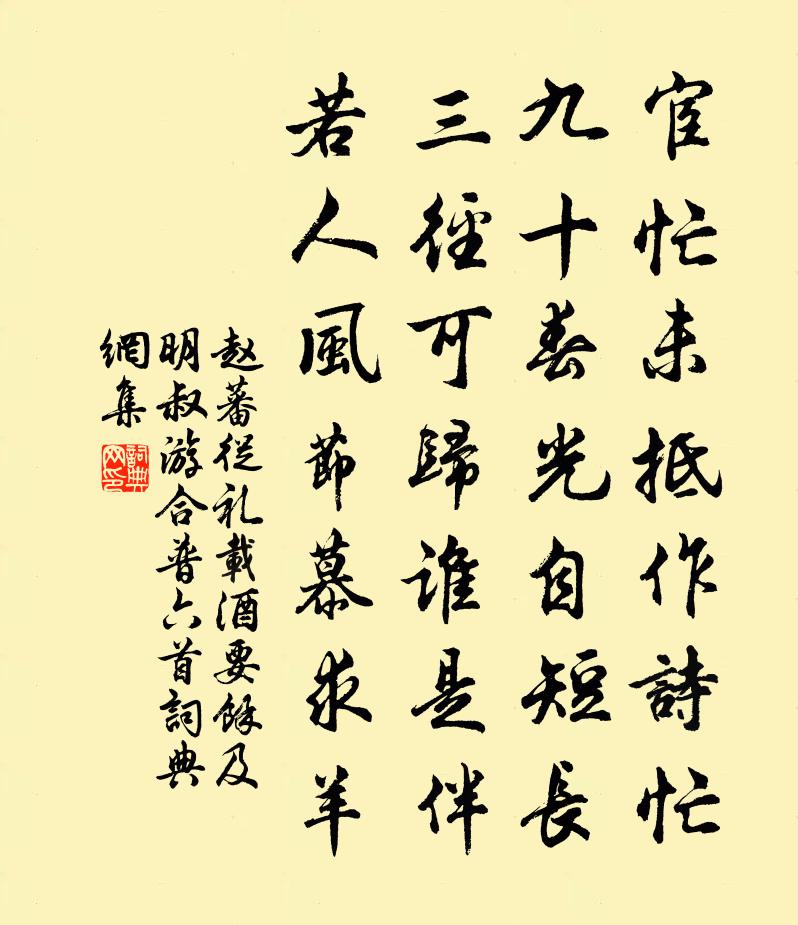 宦忙未抵作詩忙
九十春光自短長
三徑可歸誰是伴
若人風節慕求羊
赵蕃從礼載酒要餘及
明叔游合普六首詞典
網集
詞典
网印